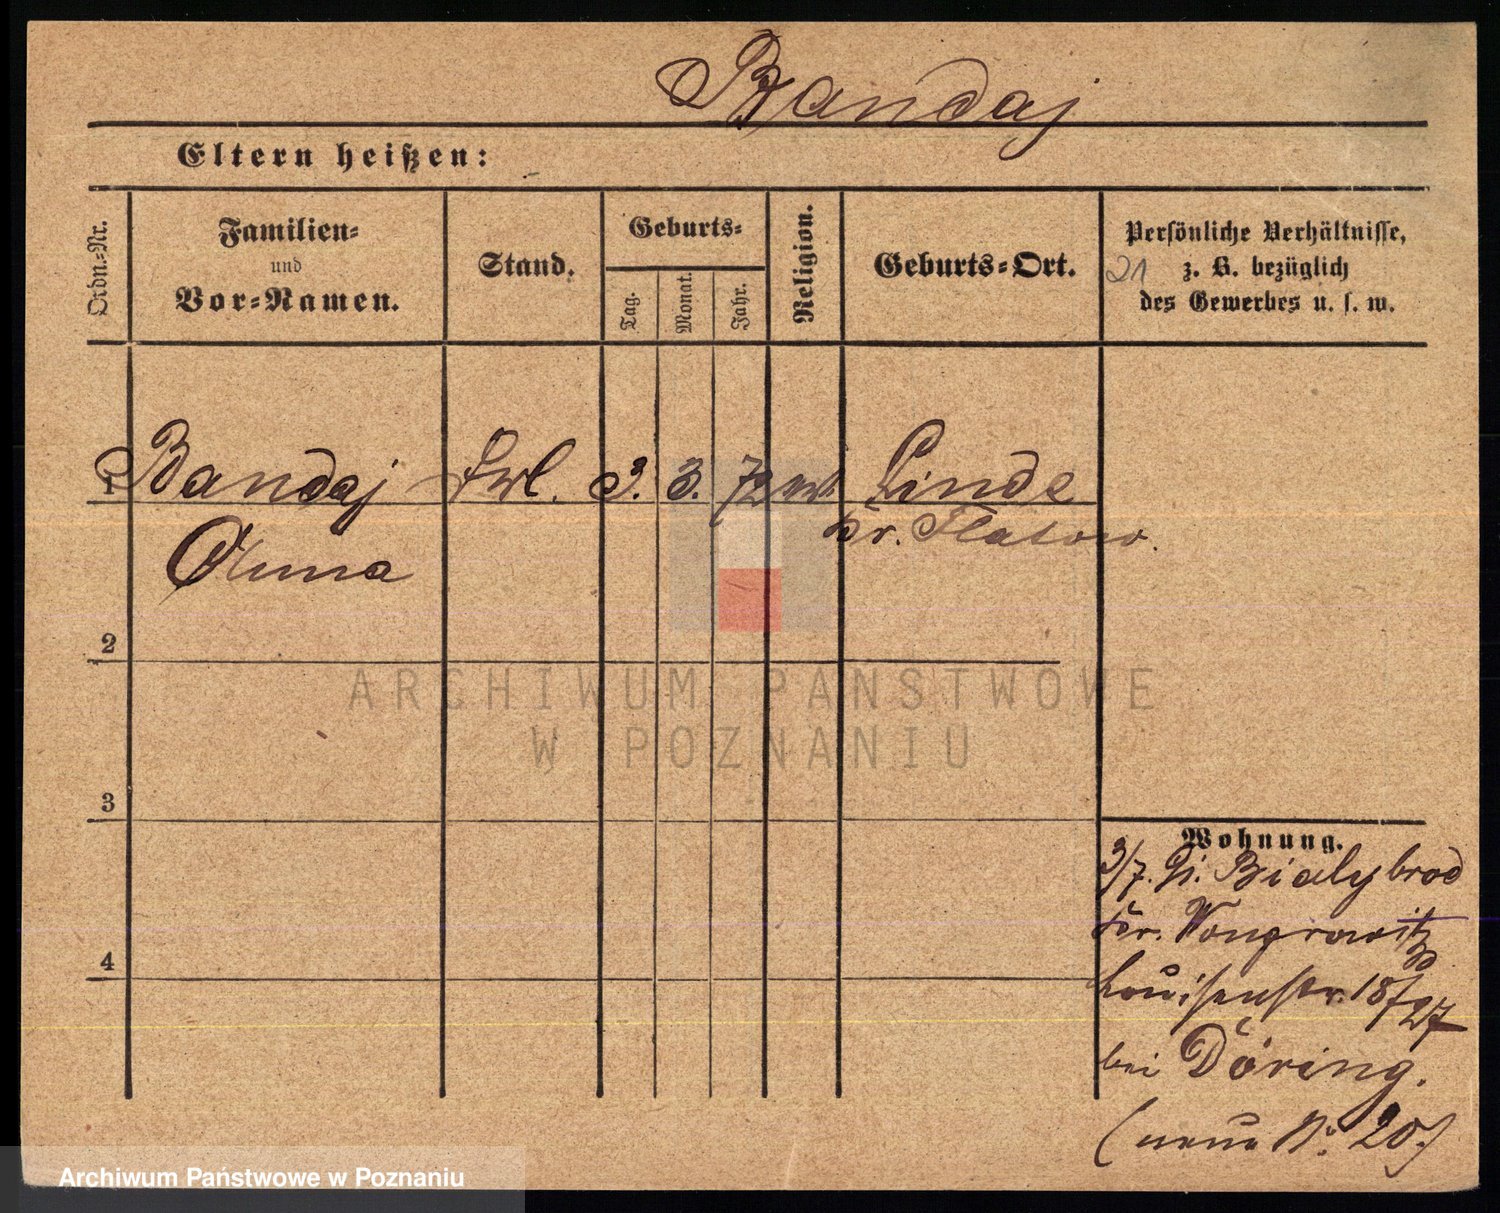 Bandaj
Eltern heißen:
Ordn.-Nr.
Familien=
und
Vor=Namen.
Stand.
Geburts=
Tag.
Monat.
Jahr.
Religion.
Geburts=Ort.
Persönliche Verhältnisse,
z. B. bezüglich
des Gewerbes u. s. w.
21
1 Bandaj Frl. 3. 3. 72 Linde
Anna Kr. Flatow.
2
3
4
Wohnung.
3/7. Bialybrod
Kr. Wongrowitz
Louisenstr. 18/
27
bei Döring.
(neue Nr. 20.)
ARCHIWUM PAŃSTWOWE
W POZNANIU
Archiwum Państwowe w Poznaniu